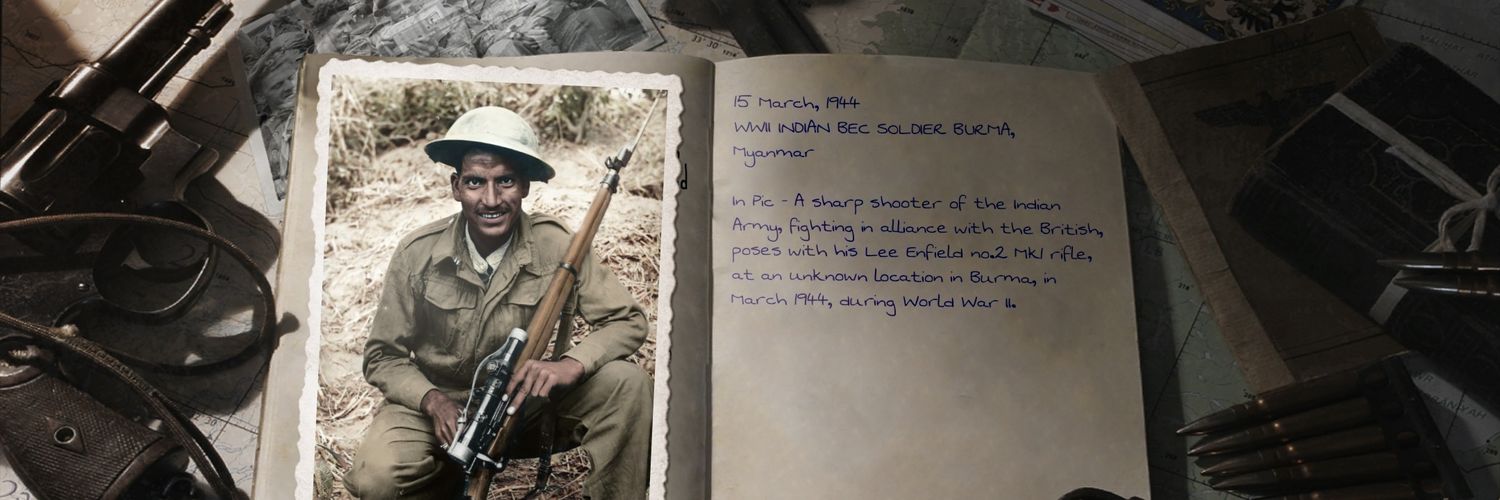 15 March, 1944
WWII INDIAN BEC SOLDIER BURMA,
Myanmar
In Pic - A sharp shooter of the Indian
Army, fighting in alliance with the British,
poses with his Lee Enfield no.2 Mk1 rifle,
at an unknown location in Burma, in
March 1944, during World War II.